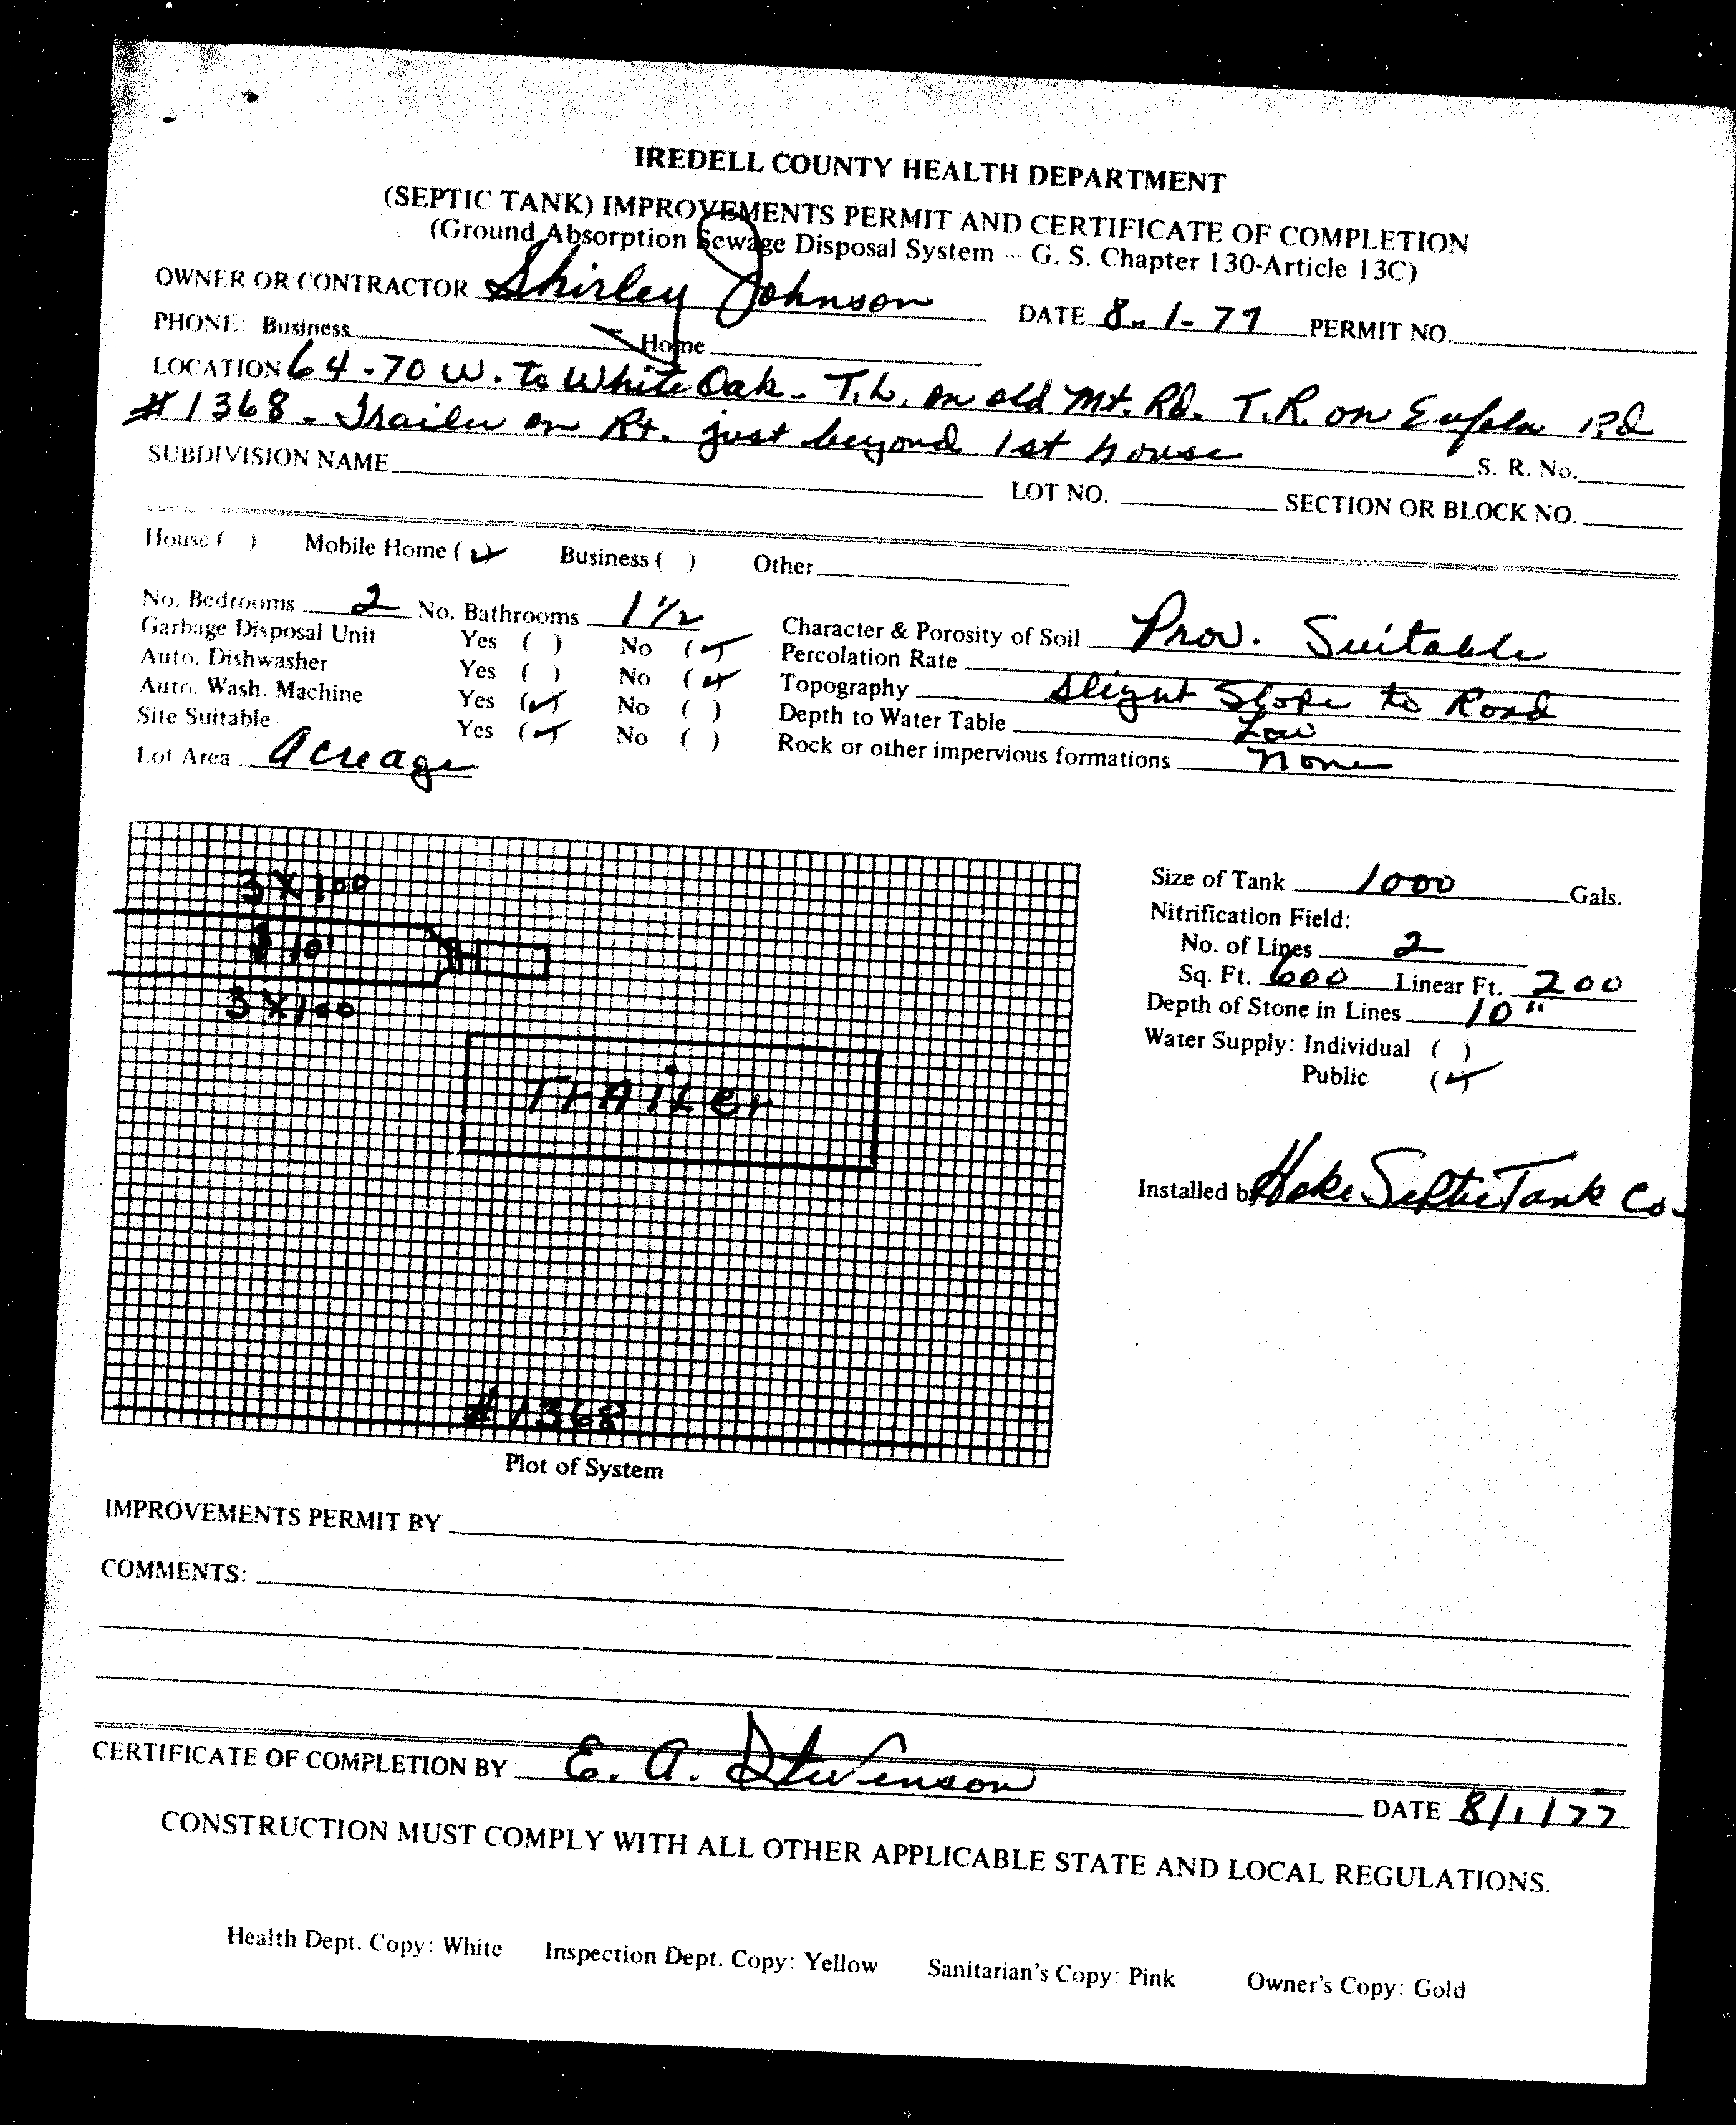 IREDELL COUNTY HEALTH DEPARTMENT
(SEPTIC TANK) IMPROVEMENTS PERMIT AND CERTIFICATE OF COMPLETION
(Ground Absorption Sewage Disposal System -- G. S. Chapter 130-Article 13C)
OWNER OR CONTRACTOR Shirley Johnson DATE 8-1-77 PERMIT NO.
PHONE: Business Home
LOCATION 64-70 W. To White Oak - T.L. on old Mt. Rd. T.R. on Eufola Rd
#1368 - Trailer on Rt. just beyond 1st house S. R. No.
SUBDIVISION NAME LOT NO. SECTION OR BLOCK NO.
House ( ) Mobile Home (✓) Business ( ) Other
No. Bedrooms 2 No. Bathrooms 1 1/2 Character & Porosity of Soil Prov. Suitable
Garbage Disposal Unit Yes ( ) No (✓) Percolation Rate
Auto. Dishwasher Yes ( ) No (✓) Topography Slight Slope to Road
Auto. Wash. Machine Yes (✓) No ( ) Depth to Water Table Low
Site Suitable Yes (✓) No ( ) Rock or other impervious formations None
Lot Area Acreage
3 X 100
10'
3 X 100
TrAiLer
#1368
Plot of System
Size of Tank 1000 Gals.
Nitrification Field:
No. of Lines 2
Sq. Ft. 600 Linear Ft. 200
Depth of Stone in Lines 10"
Water Supply: Individual ( )
Public (✓)
Installed by Hoke Septic Tank Co.
IMPROVEMENTS PERMIT BY
COMMENTS:
CERTIFICATE OF COMPLETION BY E. A. Stevenson DATE 8/1/77
CONSTRUCTION MUST COMPLY WITH ALL OTHER APPLICABLE STATE AND LOCAL REGULATIONS.
Health Dept. Copy: White Inspection Dept. Copy: Yellow Sanitarian's Copy: Pink Owner's Copy: Gold